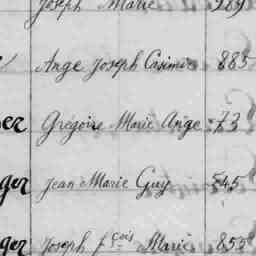 Joseph Marie 289
Ange Joseph Casimir 885
er Grégoire Marie Ange 73
ger Jean Marie Guy 545
ger Joseph fçois Marie 855